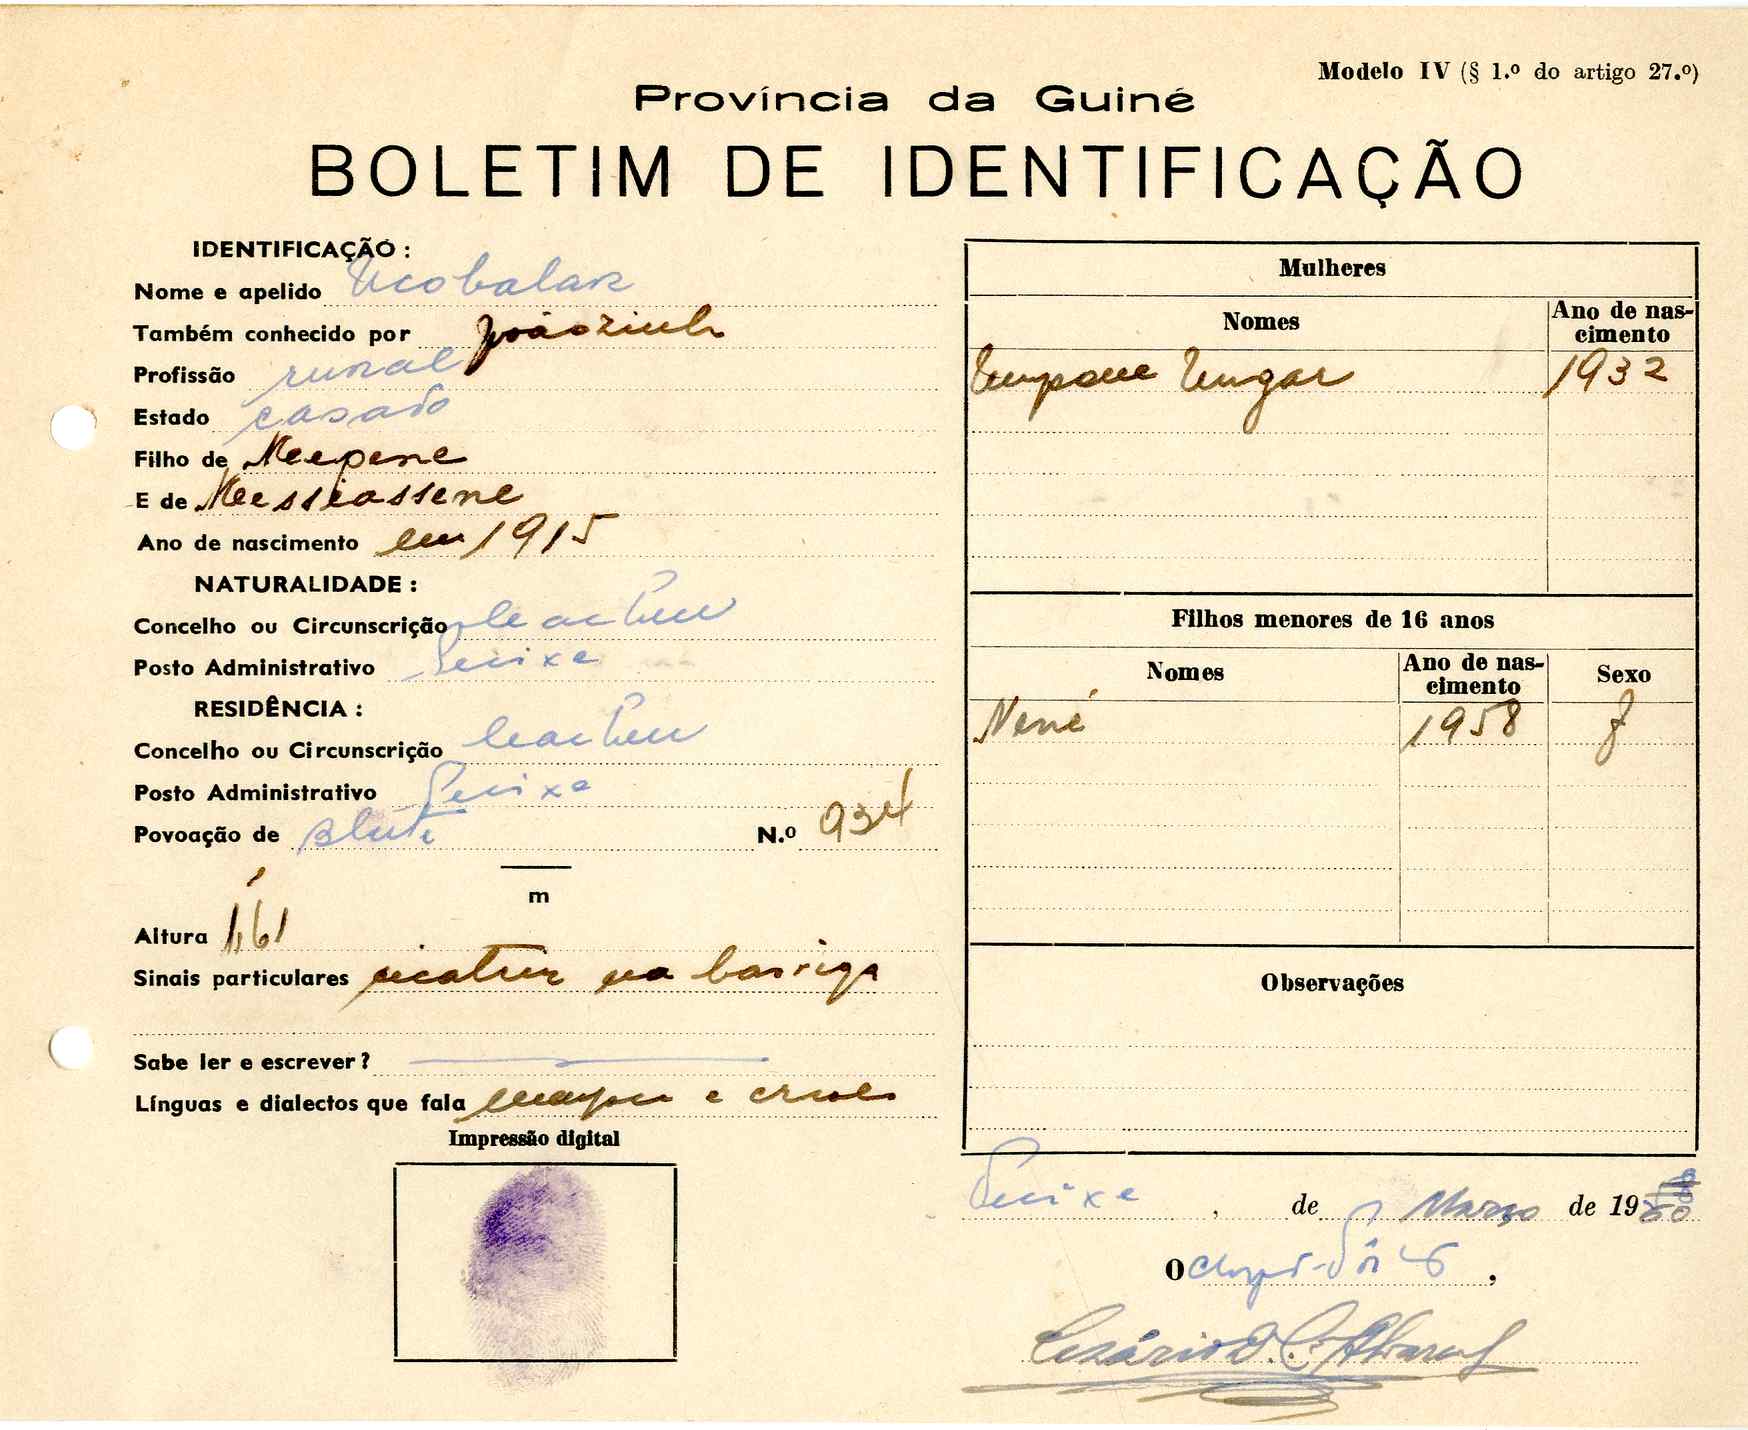 Modelo IV (§ 1.º do artigo 27.º)
Província da Guiné
BOLETIM DE IDENTIFICAÇÃO
IDENTIFICAÇÃO :
Nome e apelido Ucobalar
Também conhecido por Joãozinho
Profissão rural
Estado casado
Filho de
E de
Ano de nascimento em 1915
NATURALIDADE :
Concelho ou Circunscrição Cacheu
Posto Administrativo
RESIDÊNCIA :
Concelho ou Circunscrição Cacheu
Posto Administrativo
Povoação de N.º 934
m
Altura 1,61
Sinais particulares cicatriz na barriga
Sabe ler e escrever?
Línguas e dialectos que fala e crioulo
Impressão digital
Mulheres
Nomes
Ano de nas-
cimento
1932
Filhos menores de 16 anos
Nomes
Ano de nas-
cimento
Sexo
Nené 1958 f
Observações
, de Março de 19
O ,